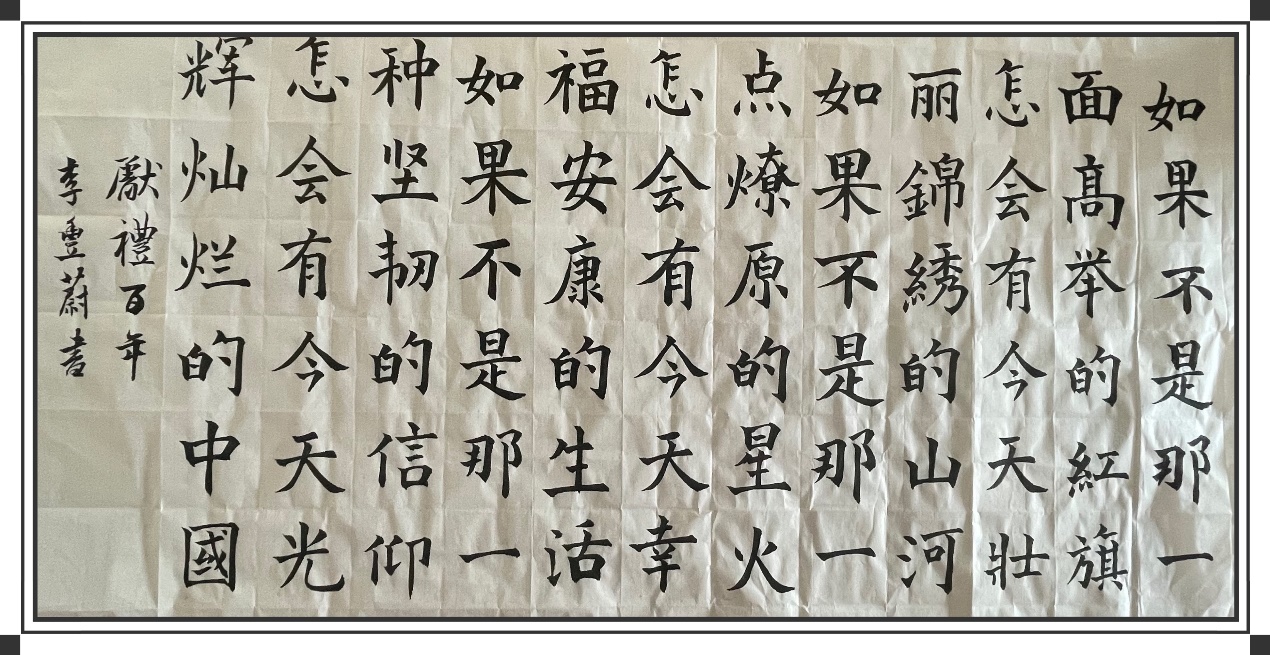 如果不是那一
面高举的紅旗
怎会有今天壮
丽錦綉的山河
如果不是那一
点燎原的星火
怎会有今天幸
福安康的生活
如果不是那一
种坚韧的信仰
怎会有今天光
辉灿烂的中國
獻禮百年
李豊蔚書